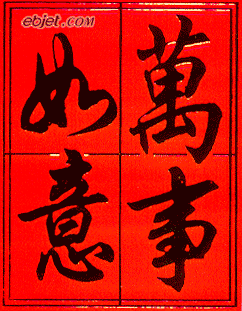 ebjet.com
萬事
如意